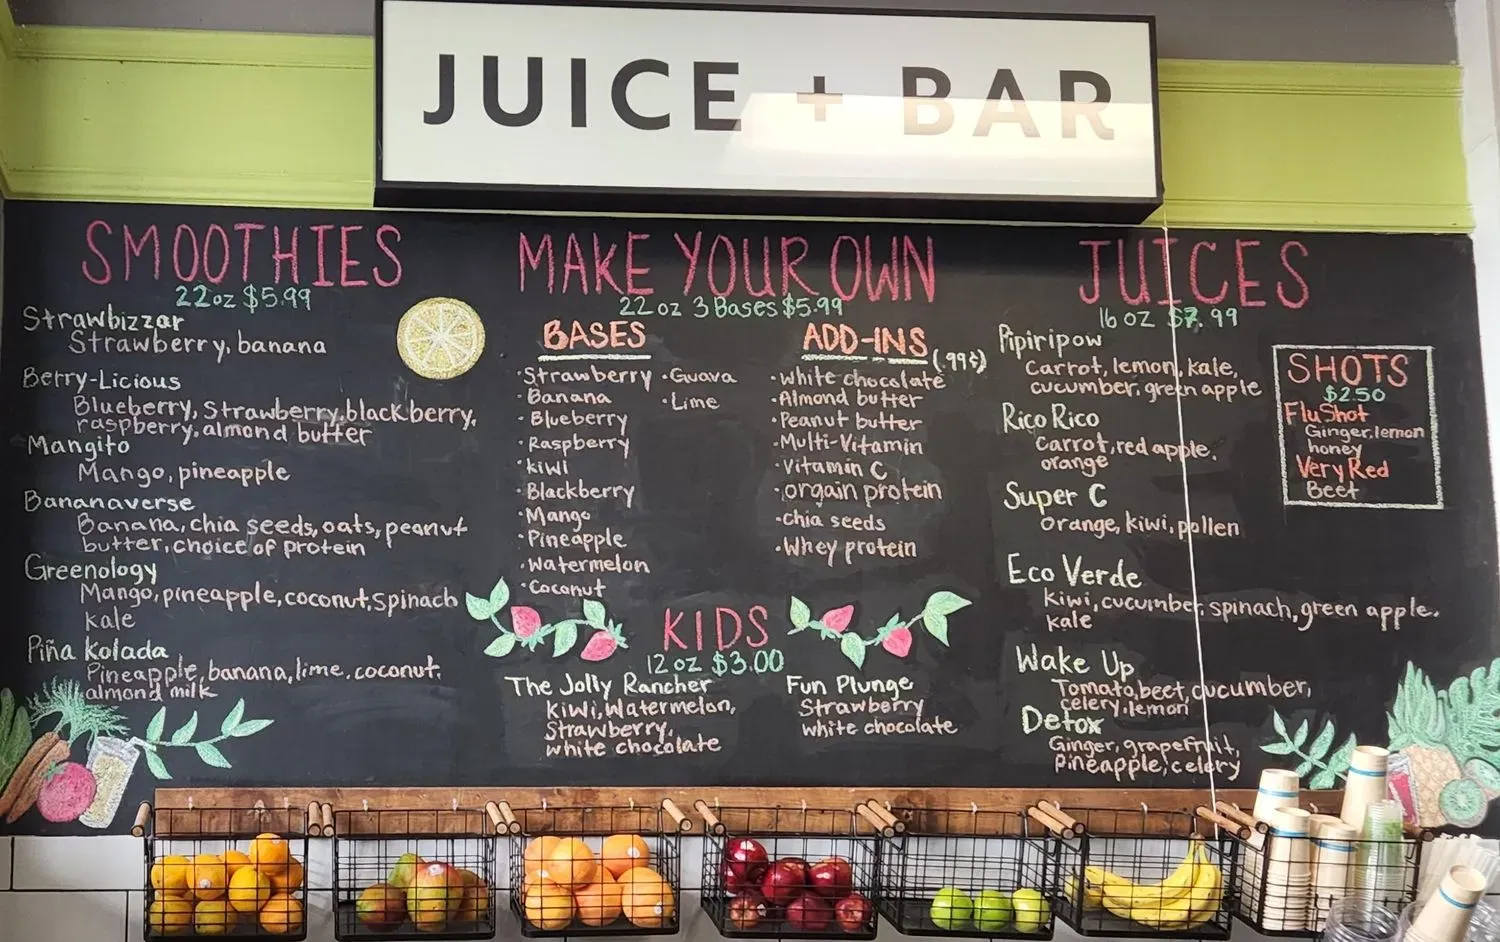 JUICE + BAR
SMOOTHIES
22oz $5.99
Strawbizzar
Strawberry, banana
Berry-Licious
Blueberry, Strawberry, blackberry,
raspberry, almond butter
Mangito
Mango, pineapple
Bananaverse
Banana, chia seeds, oats, peanut
butter, choice of protein
Greenology
Mango, pineapple, coconut, spinach
kale
Piña Kolada
Pineapple, banana, lime, coconut,
almond milk
MAKE YOUR OWN
22 oz 3 Bases $5.99
BASES
• Strawberry
• Banana
• Blueberry
• Raspberry
• kiwi
• Blackberry
• Mango
• Pineapple
• Watermelon
• Coconut
• Guava
• Lime
ADD-INS (.99¢)
• white chocolate
• Almond butter
• Peanut butter
• Multi-Vitamin
• Vitamin C
• orgain protein
• chia seeds
• Whey protein
KIDS
12 oz $3.00
The Jolly Rancher
Kiwi, Watermelon,
Strawberry,
white chocolate
Fun Plunge
Strawberry
white chocolate
JUICES
16 oz $7.99
Pipiripow
Carrot, lemon, kale,
cucumber, green apple
Rico Rico
Carrot, red apple,
orange
Super C
orange, kiwi, pollen
Eco Verde
Kiwi, cucumber, spinach, green apple,
kale
Wake Up
Tomato, beet, cucumber,
celery, lemon
Detox
Ginger, grapefruit,
Pineapple, celery
SHOTS
$2.50
Flu Shot
Ginger, lemon
honey
Very Red
Beet